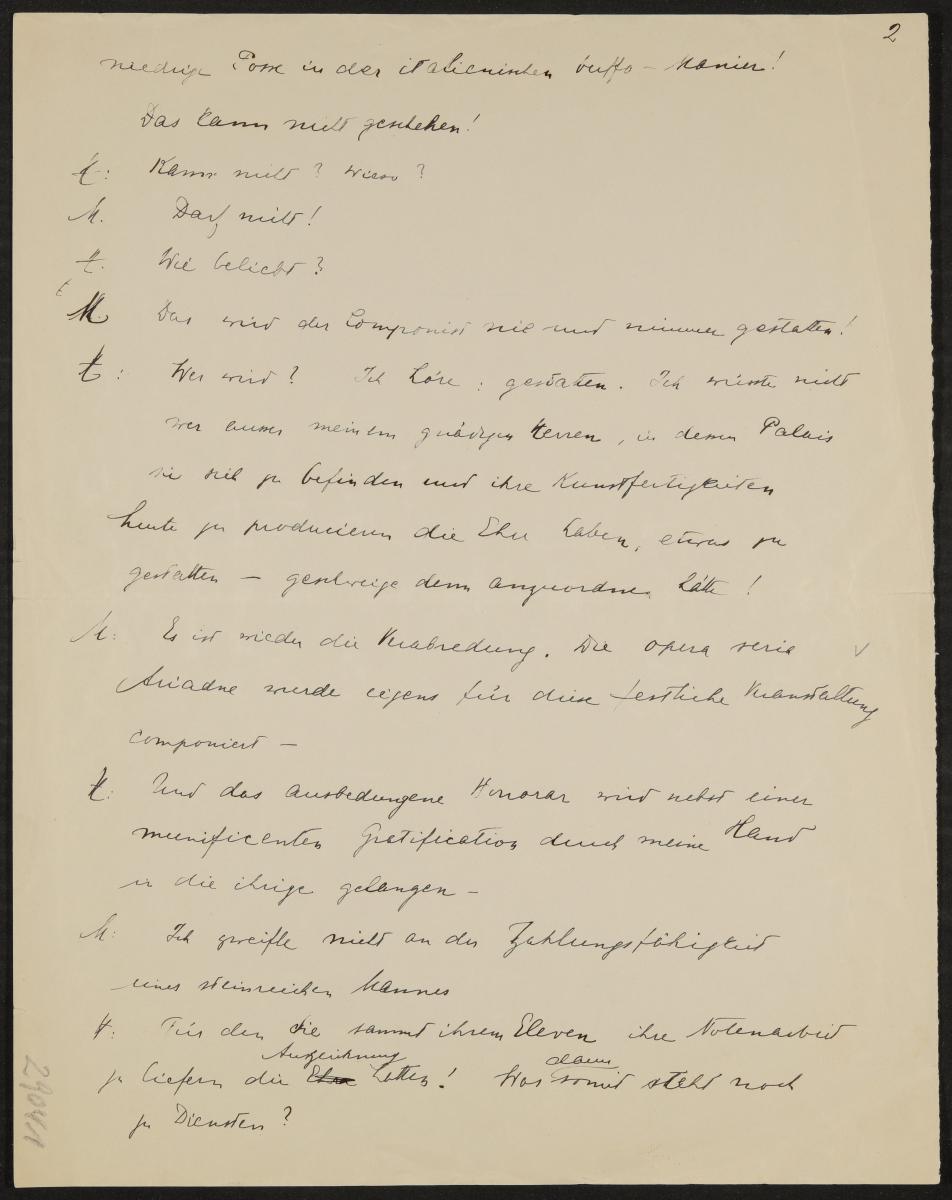 2
niedrige Posse in der italienischen buffo-Manier!
Das kann nicht geschehen!
H: Kann nicht? wieso?
M. Darf nicht!
H. Wie beliebt?
M. Das wird der Componist nie und nimmer gestatten!
H: Wer wird? Ich höre: gestatten. Ich wüsste nicht
wer ausser meinem gnädigen Herren, in dessen Palais
sie sich zu befinden und ihre Kunstfertigkeiten
heute zu producieren die Ehre haben, etwas zu
gestatten – geschweige denn anzuordnen hätte!
M: Es ist wieder die Verabredung. Die opera seria
Ariadne wurde eigens für diese festliche Veranstaltung
componiert –
H: Und das ausbedungene Honorar wird nebst einer
munificenten Gratification durch meine Hand
in die ihrige gelangen –
M: Ich zweifle nicht an der Zahlungsfähigkeit
eines steinreichen Mannes
H: Für den die sammt ihrem Eleven ihre Notenarbeit
Auszeichnung dann
zu liefern die Ehre hatten! Was somit steht noch
zu Diensten?